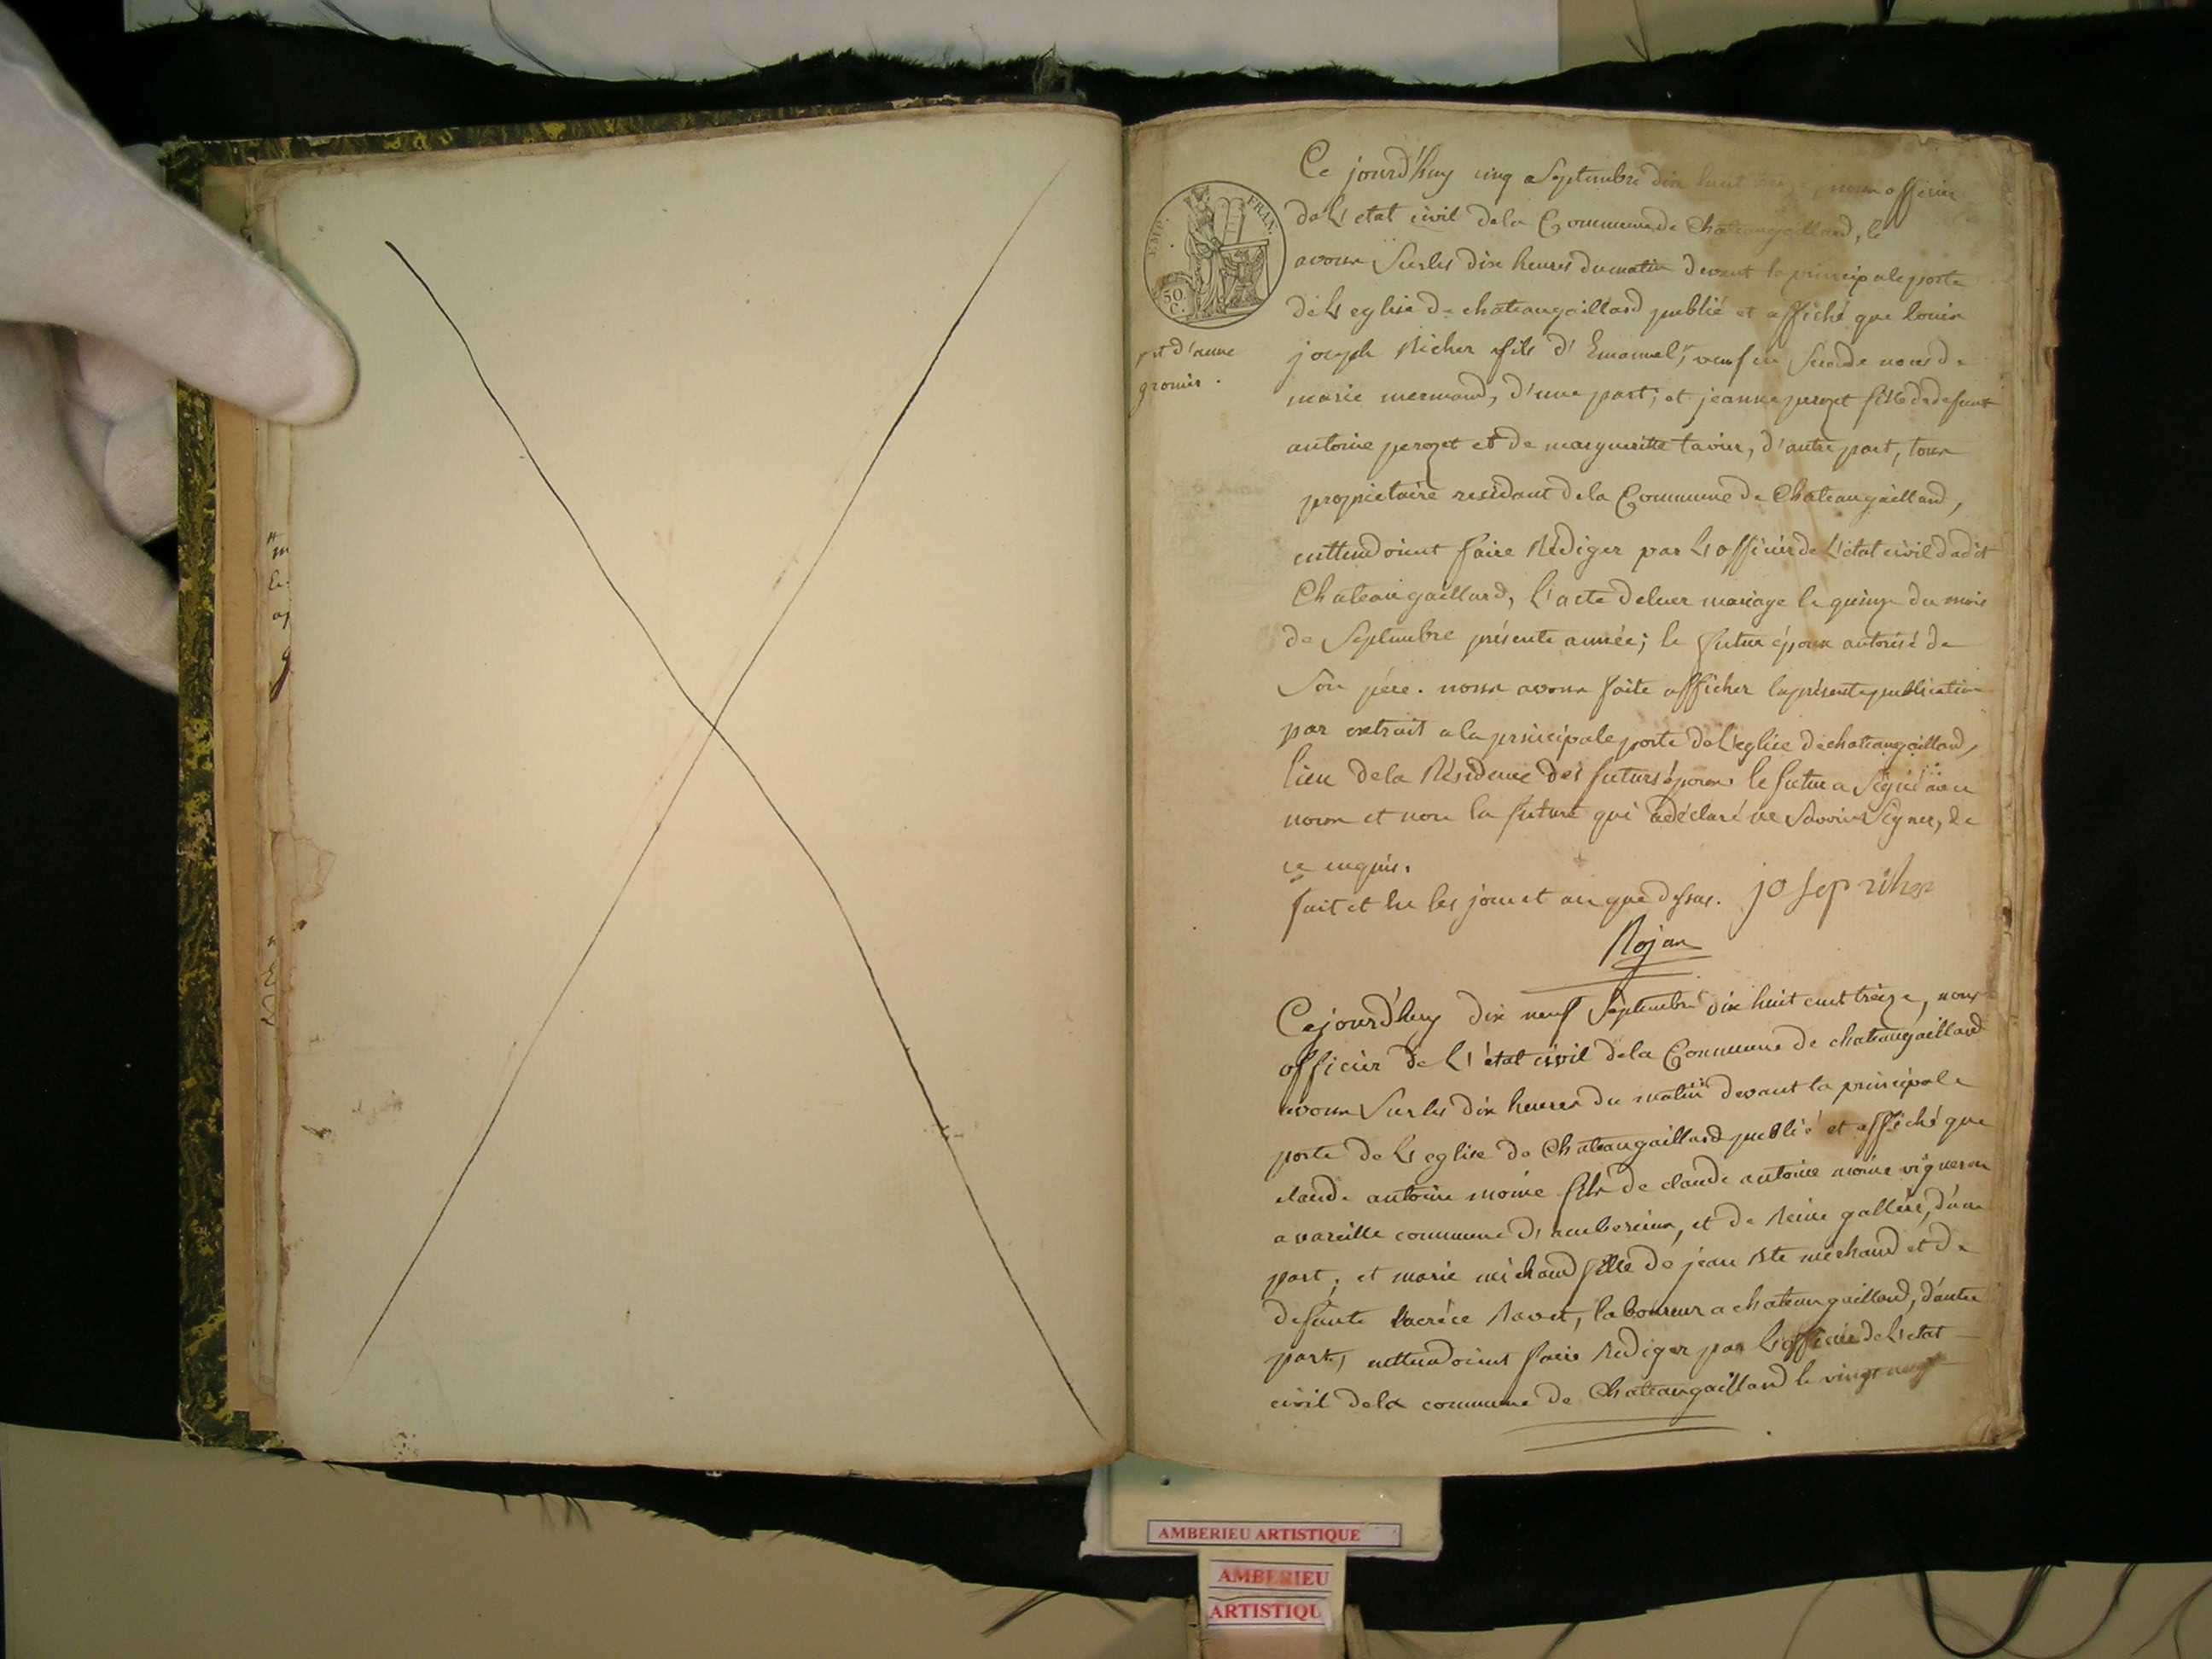 EMP. FRAN.
50
C.
et d'anne
gromier.
Ce jourd'huy cinq Septembre dix huit treize, nous officier
de L'etat civil dela Commune de Chateaugaillard, le
avons Sur les dix heures du matin devant la principale porte
de L'eglise de chateaugaillard publié et affiché que louis
joseph Richer fils d'Emanuel, veuf en Seconde noces de
marie mermand, d'une part; et jeanne perozet fille de defunt
antoine perozet et de margueritte tavier, d'autre part, tous
propietaire residant dela Commune de Chateaugaillard,
enttendoient faire Rédiger par L'officier de L'etat civil dudit
Chateaugaillard, L'acte deleur mariage le quinze du mois
de Septembre présente année; le futur époux autorisé de
Son pére. nous avons faite afficher la présente publication
par extrait a la principale porte de L'eglise de chateaugaillard,
lieu dela Résidence des futurs époux. le futur a Signé avec
nous et non la future qui a déclaré ne Savoir Signer, de
ce enquis.
fait et lu les jour et an que dessus. josep riher
Rojan
Cejourd'huy dix neuf Septembre dix huit cent treize, nous
officier de L'état civil dela Commune de chateaugaillard
avons Sur les dix heures du matin devant la principale
porte de L'eglise de Chateaugaillard publié et affiché que
claude antoine moine fils de claude antoine moine vigneron
a vareille commune d'ambérieux, et de Reine gallére, d'une
part; et marie michaud fille de jean Bte michaud et de
defunte lucréce Ravet, laboureur a chateaugaillard, d'autre
part, enttendoient faire Rediger par L'officier de L'etat
civil dela commune de Chateaugaillard le vingt neuf
AMBERIEU ARTISTIQUE
AMBERIEU
ARTISTIQU